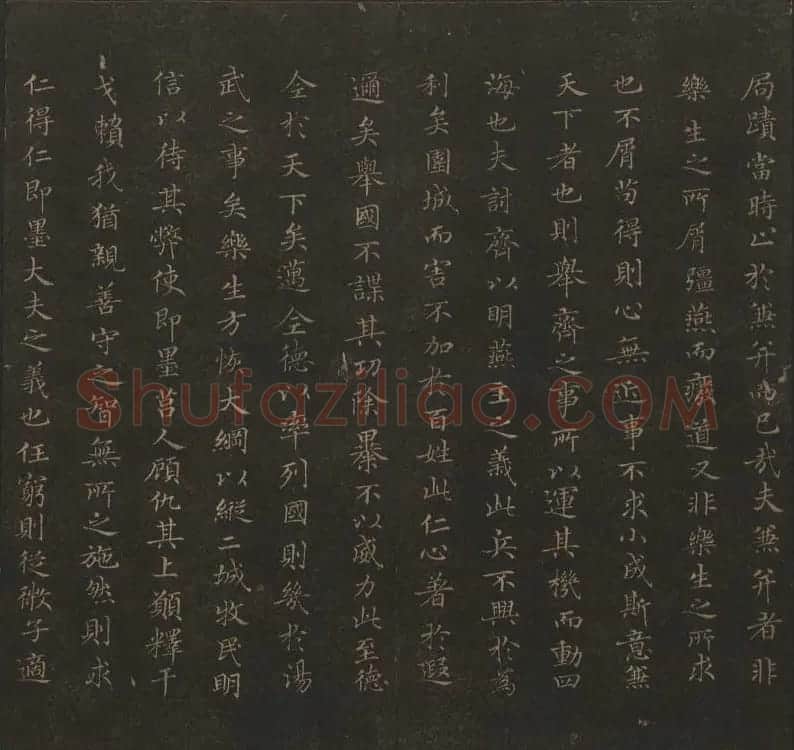 局蹟當時止於兼并而已哉夫兼并者非
樂生之所屑彊燕而癈道又非樂生之所求
也不屑苟得則心無近事不求小成斯意兼
天下者也則舉齊之事所以運其機而動四
海也夫討齊以明燕主之義此兵不興於為
利矣圍城而害不加於百姓此仁心著於遐
邇矣舉國不謀其功除暴不以威力此至德
全於天下矣邁全德以率列國則幾於湯
武之事矣樂生方恢大綱以縱二城牧民明
信以待其弊使即墨莒人顧仇其上願釋干
戈賴我猶親善守之智無所之施然則求
仁得仁即墨大夫之義也任窮則從微子適
Shufaziliao.COM